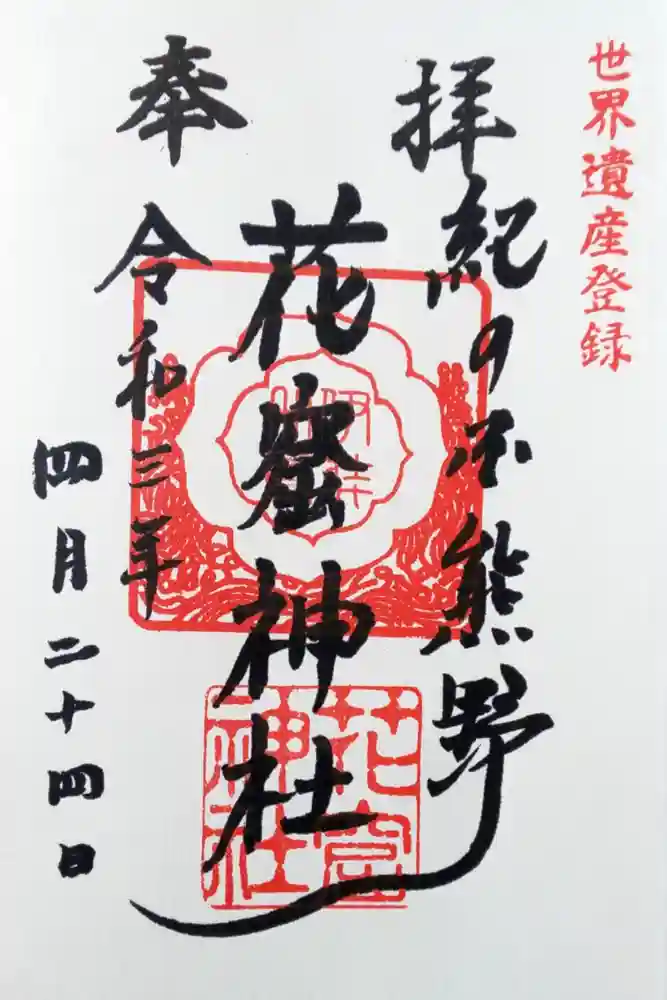 世界遺産登録
奉拝
紀の国熊野
花窟神社
令和三年
四月二十四日
花窟
神社